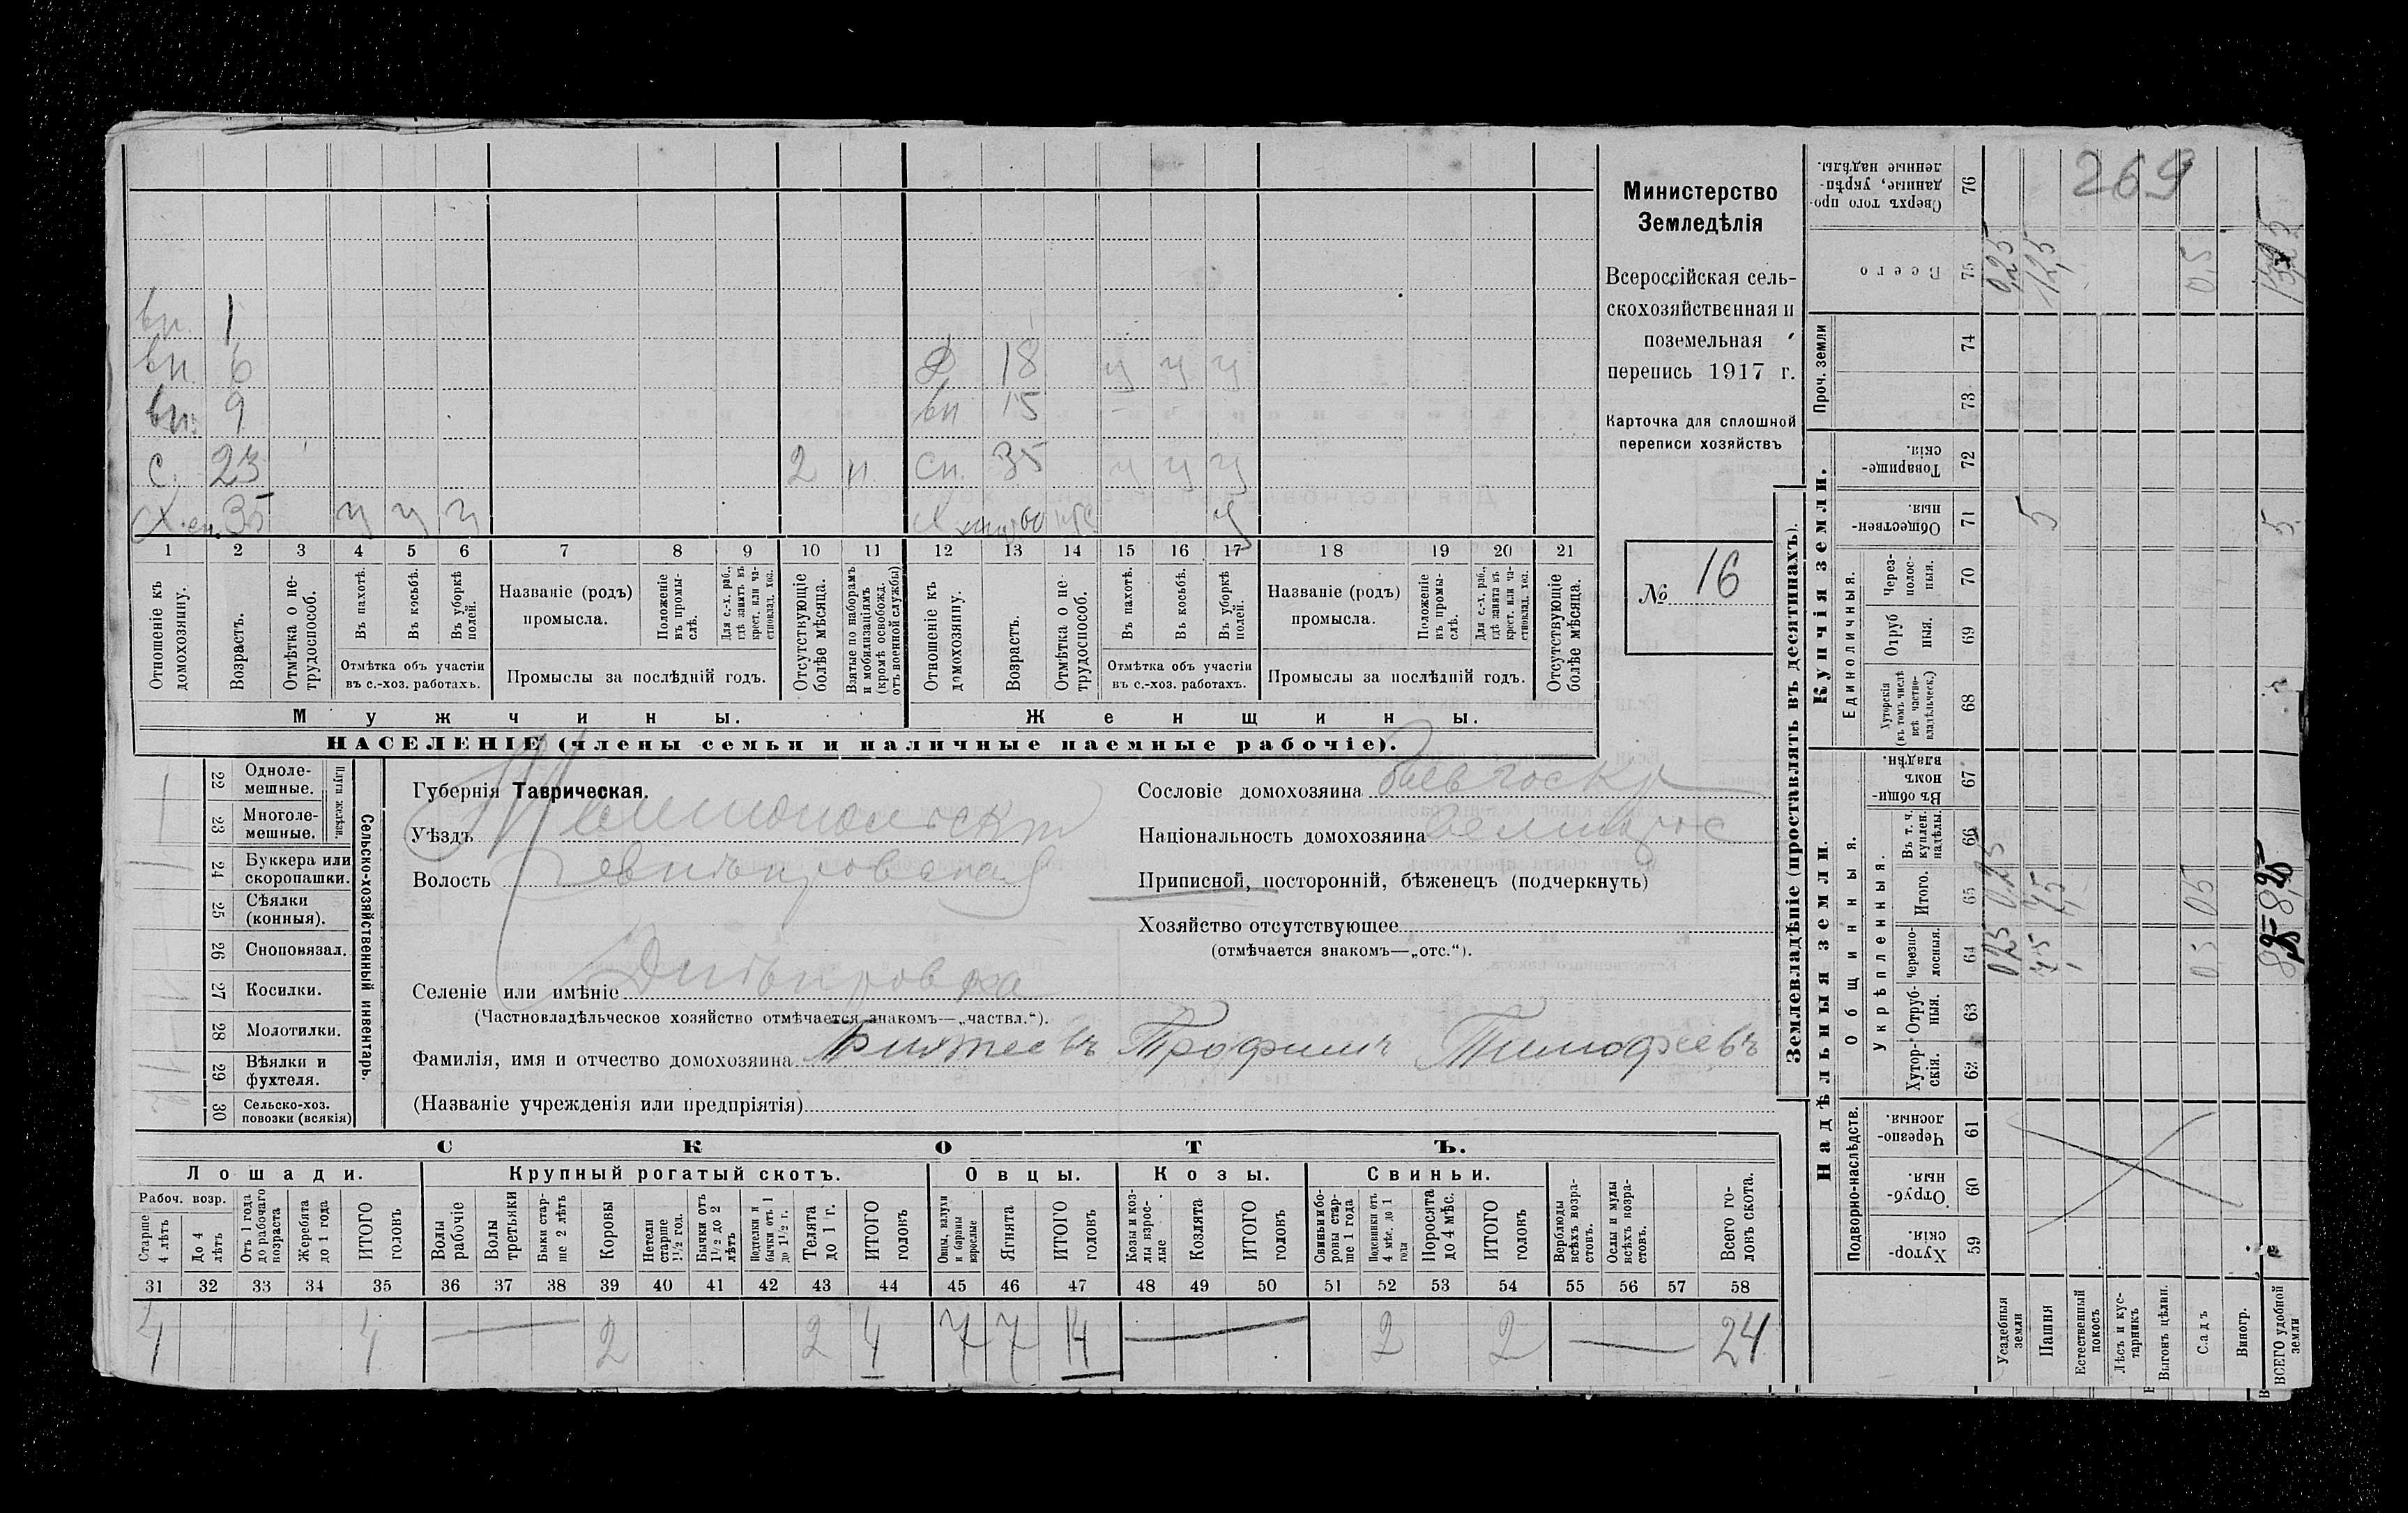 вн. 1
вн. 6
вн. 9
с. 23 2 н.
Х. 35 у у у
18 у у у
вн 15
сн. 35 у у у
60 у
1 2 3 4 5 6 7 8 9 10 11 12 13 14 15 16 17 18 19 20 21
Отношеніе къ домохозяину.
Возрастъ.
Отмѣтка о не-трудоспособ.
Въ пахотѣ.
Въ косьбѣ.
Въ уборкѣ полей.
Отмѣтка объ участіи въ с.-хоз. работахъ.
Названіе (родъ) промысла.
Положеніе въ промы-слѣ.
Для с.-х. раб., гдѣ занятъ въ крест. или ча-стновлад. хоз.
Промыслы за послѣдній годъ.
Отсутствующіе болѣе мѣсяца.
Взятые по наборамъ и мобилизаціямъ (кромѣ освобожд. отъ военной службы)
Отношеніе къ домохозяину.
Возрастъ.
Отмѣтка о не-трудоспособ.
Въ пахотѣ.
Въ косьбѣ.
Въ уборкѣ полей.
Отмѣтка объ участіи въ с.-хоз. работахъ.
Названіе (родъ) промысла.
Положеніе въ промы-слѣ.
Для с.-х. раб., гдѣ занята въ крест. или ча-стновлад. хоз.
Промыслы за послѣдній годъ.
Отсутствующіе болѣе мѣсяца.
Мужчины.
Женщины.
НАСЕЛЕНІЕ (члены семьи и наличные наемные рабочіе).
Министерство
Земледѣлія
Всероссійская сель-
скохозяйственная и
поземельная
перепись 1917 г.
Карточка для сплошной
переписи хозяйствъ
№ 16
22 Одноле-мешные.
23 Многоле-мешные.
Плуги желѣзн.
24 Буккера или скоропашки.
25 Сѣялки (конныя).
26 Сноповязал.
27 Косилки.
28 Молотилки.
29 Вѣялки и фухтеля.
30 Сельско-хоз. повозки (всякія)
Сельско-хозяйственный инвентарь.
Губернія Таврическая.
Уѣздъ Мелитопольскій
Волость Днѣпровская
Селеніе или имѣніе Днѣпровка
(Частновладѣльческое хозяйство отмѣчается знакомъ—„частвл.“).
Фамилія, имя и отчество домохозяина Трофимъ Тимофеевъ
(Названіе учрежденія или предпріятія)
Сословіе домохозяина
Національность домохозяина Великорос
Приписной, посторонній, бѣженецъ (подчеркнуть)
Хозяйство отсутствующее
(отмѣчается знакомъ—„отс.“).
СКОТЪ.
Лошади. Крупный рогатый скотъ. Овцы. Козы. Свиньи.
Рабоч. возр.
Старше 4 лѣтъ
До 4 лѣтъ
Отъ 1 года до рабочаго возраста
Жеребята до 1 года
ИТОГО головъ
Волы рабочіе
Волы третьяки
Быки стар-ше 2 лѣтъ
Коровы
Нетели старше 1½ год.
Бычки отъ 1½ до 2 лѣтъ
Нетелки и бычки отъ 1 до 1½ г.
Телята до 1 г.
ИТОГО головъ
Овцы, валухи и бараны взрослые
Ягнята
ИТОГО головъ
Козы и коз-лы взрос-лые
Козлята
ИТОГО головъ
Свиньи и бо-ровы стар-ше 1 года
Подсвинки отъ 4 мѣс. до 1 года
Поросята до 4 мѣс.
ИТОГО головъ
Верблюды всѣхъ возра-стовъ.
Ослы и мулы всѣхъ возра-стовъ.
Всего го-ловъ скота.
31 32 33 34 35 36 37 38 39 40 41 42 43 44 45 46 47 48 49 50 51 52 53 54 55 56 57 58
4 4 2 2 4 7 7 14 2 2 24
Землевладѣніе (проставлять въ десятинахъ).
269
Сверхъ того про-данные, укрѣп-ленные надѣлы. 76
Всего 75 0,25 12,5 0,5
Проч. земли 74 73
Купчія земли.
Товарище-скія. 72
Обществен-ныя 71 5 5
Единоличныя.
Через-полос-ныя. 70
Отруб ныя. 69
Хуторскія (въ томъ числѣ всѣ частно-владѣльческ.) 68
Надѣльныя земли.
Общинныя.
Въ общи-номъ владѣн. 67
Укрѣпленныя.
Въ т. ч. куплен. надѣлы. 66
Итого. 65 0.25 7,5 0,5
Черезпо-лосныя. 64 0,25 7,5 0,5
Отруб-ныя. 63
Хутор-скія. 62
Подворно-наслѣдств.
Черезпо-лосныя. 61
Отруб-ныя. 60
Хутор-скія. 59
Усадебныя земли
Пашня
Естественный покосъ
Лѣсъ и кус-тарникъ
Выгонъ цѣлин.
Садъ
Виногр.
ВСЕГО удобной земли